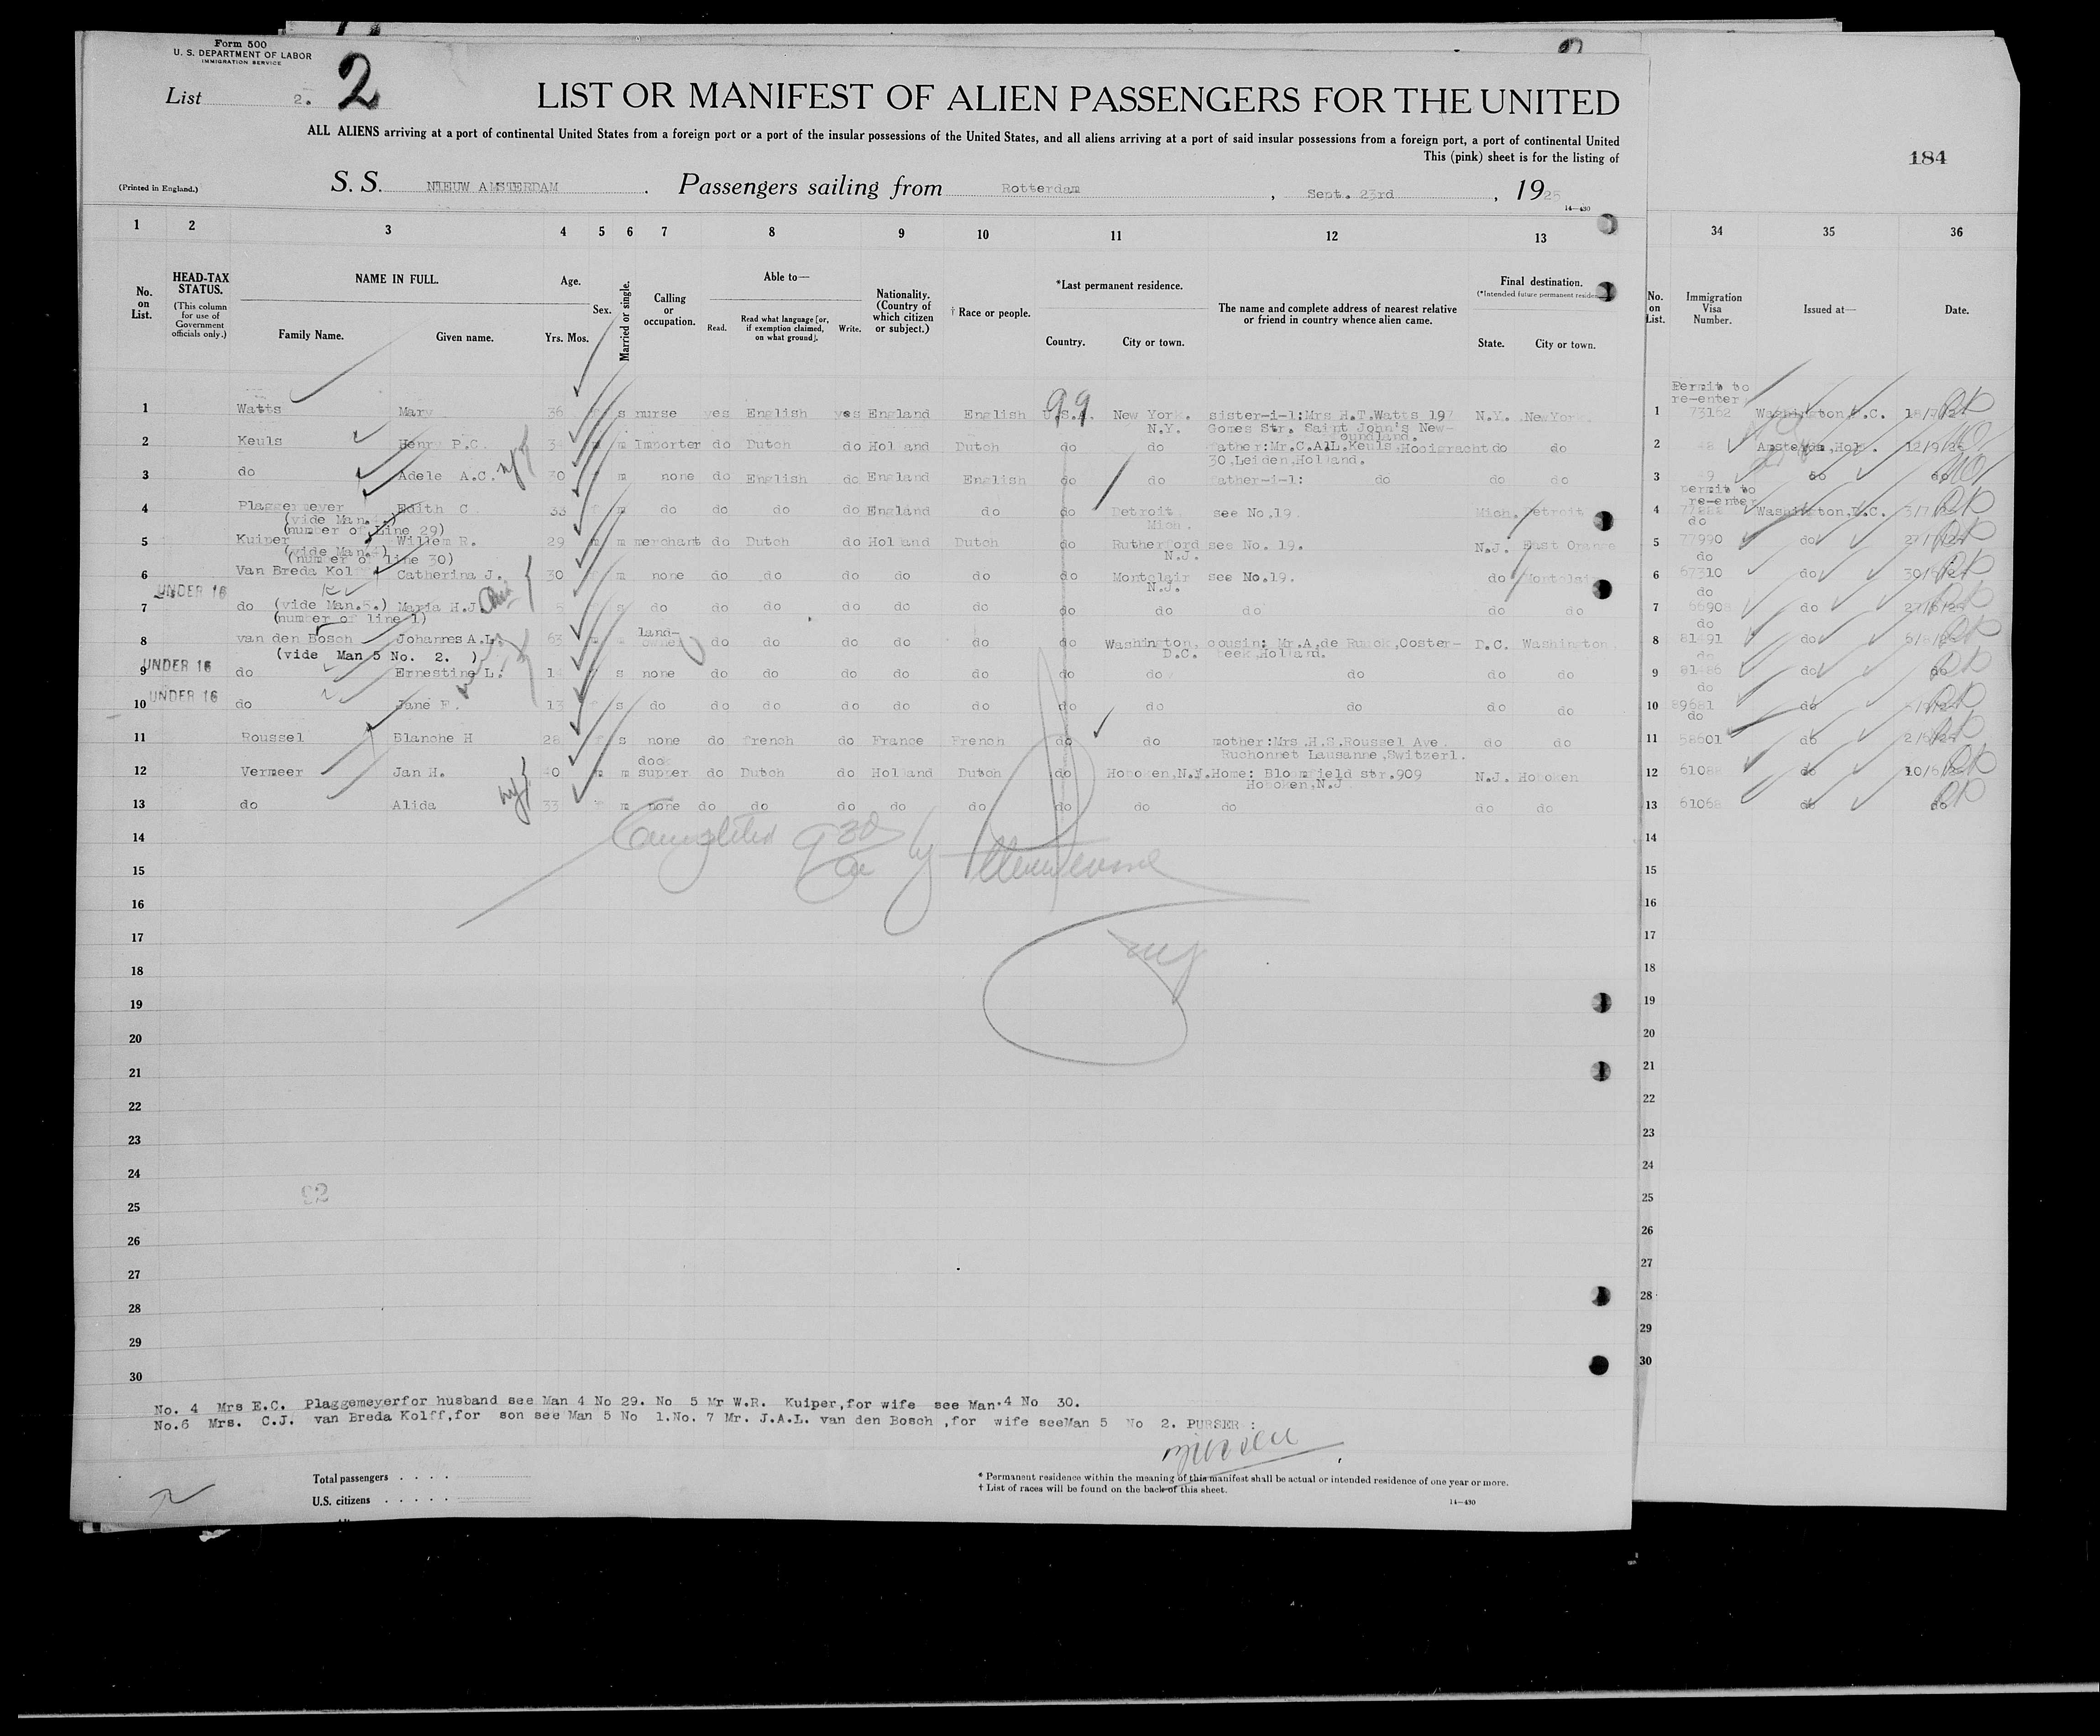 Form 500
U. S. DEPARTMENT OF LABOR
IMMIGRATION SERVICE
List 2. 2
LIST OR MANIFEST OF ALIEN PASSENGERS FOR THE UNITED
ALL ALIENS arriving at a port of continental United States from a foreign port or a port of the insular possessions of the United States, and all aliens arriving at a port of said insular possessions from a foreign port, a port of continental United
This (pink) sheet is for the listing of
184
(Printed in England.)
S. S. NIEUW AMSTERDAM. Passengers sailing from Rotterdam, Sept. 23rd, 1925
14—430
1 2 3 4 5 6 7 8 9 10 11 12 13 34 35 36
No. on List.
HEAD-TAX STATUS.
(This column for use of Government officials only.)
NAME IN FULL.
Family Name. Given name.
Age.
Yrs. Mos.
Sex.
Married or single.
Calling or occupation.
Able to—
Read. Read what language [or, if exemption claimed, on what ground]. Write.
Nationality. (Country of which citizen or subject.)
† Race or people.
*Last permanent residence.
Country. City or town.
The name and complete address of nearest relative or friend in country whence alien came.
Final destination.
(*Intended future permanent residen
State. City or town.
No. on List.
Immigration Visa Number.
Issued at—
Date.
99
Permit to re-enter
1 Watts Mary 36 s nurse yes English yes England English U.S.A. New York. N.Y. sister-i-l:Mrs H.T.Watts 197 Gomes Str. Saint John's New-oundland. N.Y. New York 1 73162 Washington D.C.
2 Keuls Henry P.C. m Importer do Dutch do Holland Dutch do do father:Mr.C.A.L.Keuls,Hooigracht 30,Leiden,Holland. do do 2 Amsterdam,Holl. 12/9/25
3 do Adele A.C. 30 m none do English do England English do do father-i-l: do do do 3 do do
permit to re-enter
4 Plaggemeyer Edith C 33 m do do do do England do do Detroit Mich. see No.19. Mich. Detroit 4 Washington,D.C.
(vide Man. 4)
(number of Line 29)
do
5 Kuiper Willem R. 29 m m merchant do Dutch do Holland Dutch do Rutherford N.J. see No. 19. N.J. East Orange 5 77990 do
(vide Man.4)
(number of line 30)
do
6 Van Breda Kolff Catherina J. 30 m none do do do do do do Montclair N.J. see No.19. do Montclair 6 67310 do
UNDER 16
do
7 do (vide Man.5.) Maria H.J. 5 s do do do do do do do do do do do 7 do
(number of line 1)
do
8 van den Bosch Johannes A.L. 63 m m land-owner do do do do do do Washington, D.C. cousin: Mr.A.de Ruuck,Ooster-beek,Holland. D.C. Washington 8 81491 do
(vide Man 5 No. 2. )
UNDER 16
do
9 do Ernestine L. s none do do do do do do do do do do 9 81486 do do
UNDER 16
do
10 do Jane F. 13 s do do do do do do do do do do do 10 89681 do
do
11 Roussel Blanche H 28 s none do french do France French do do mother:Mrs.H.S.Roussel Ave. Ruchonnet Lausanne,Switzerl. do do 11 58601 do
12 Vermeer Jan H. 40 m m dock supper do Dutch do Holland Dutch do Hoboken,N.J. Home: Bloomfield str.909 Hoboken,N.J N.J. Hoboken 12 do 10/6/25
13 do Alida 33 m none do do do do do do do do do do 13 61068 do do
14 14
Completed 9 30 by
15 15
16 16
17 17
18 18
19 19
20 20
21 21
22 22
23 23
24 24
25 25
26 26
27 27
28 28
29 29
30 30
No. 4 Mrs E.C. Plaggemeyerfor husband see Man 4 No 29. No 5 Mr W.R. Kuiper,for wife see Man.4 No 30.
No.6 Mrs. C.J. van Breda Kolff,for son see Man 5 No 1.No. 7 Mr. J.A.L. van den Bosch ,for wife seeMan 5 No 2. PURSER :
Total passengers . . . .
U.S. citizens . . . . .
* Permanent residence within the meaning of this manifest shall be actual or intended residence of one year or more.
† List of races will be found on the back of this sheet.
14—430